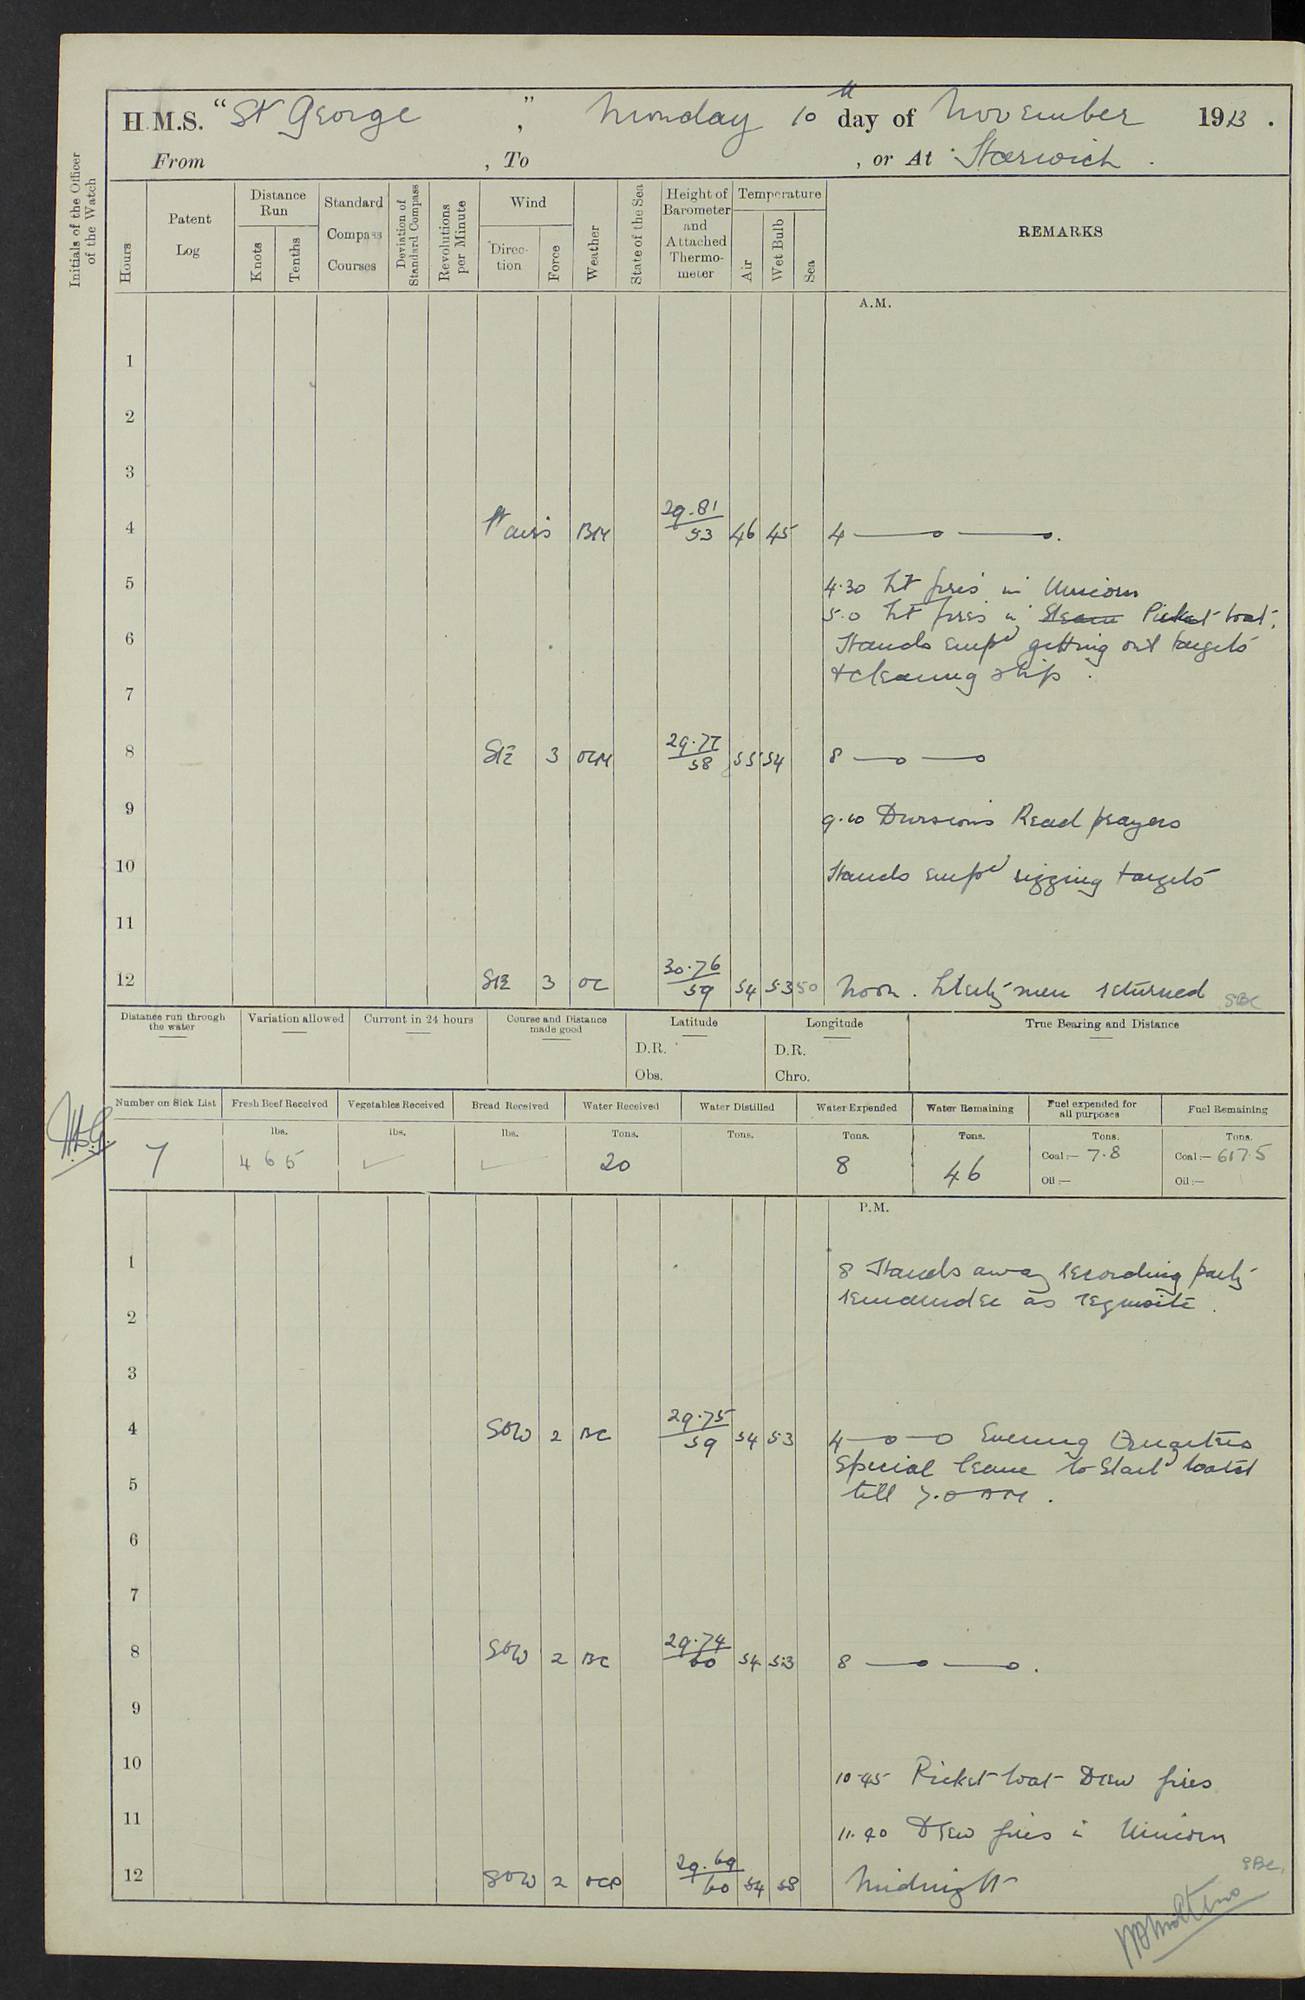 H.M.S. "St George", Monday 10th day of November 1913.
From , To , or At Harwich.
Initials of the Officer of the Watch
Hours
Patent Log
Distance Run
Knots
Tenths
Standard Compass Courses
Deviation of Standard Compass
Revolutions per Minute
Wind
Direction
Force
Weather
State of the Sea
Height of Barometer and Attached Thermometer
Temperature
Air
Wet Bulb
Sea
REMARKS
A.M.
1
2
3
4 Airs BM 29.81/53 46 45 4
5 4.30 Lt fires in Unicorn
5.0 Lt fires in Steam Picket boat.
6 Hands empd getting out targets
7 & cleaning ship.
8 SE 3 OCM 29.77/58 55 54 8
9 9.10 Divisions Read prayers
10 Hands empd rigging targets
11
12 SE 3 OC 30.76/59 54 53 50 Noon. Liberty men returned SBC
Distance run through the water
Variation allowed
Current in 24 hours
Course and Distance made good
Latitude
D.R.
Obs.
Longitude
D.R.
Chro.
True Bearing and Distance
Number on Sick List
Fresh Beef Received
Vegetables Received
Bread Received
Water Received
Water Distilled
Water Expended
Water Remaining
Fuel expended for all purposes
Fuel Remaining
lbs. lbs. lbs. Tons. Tons. Tons. Tons. Tons. Tons.
7 465 ✓ ✓ 20 8 46 Coal:— 7.8 Coal:— 617.5
Oil:— Oil:—
P.M.
1 8 Hands away recording party
2 remainder as requisite.
3
4 SW 2 BC 29.75/59 54 53 4 Evening Quarters
Special leave to Start boats
5 till 7.0 AM.
6
7
8 SW 2 BC 29.74/60 54 53 8
9
10 10.45 Picket boat Drew fires
11 11.40 Drew fires in Unicorn
12 SW 2 OCP 29.69/60 54 53 Midnight SBC